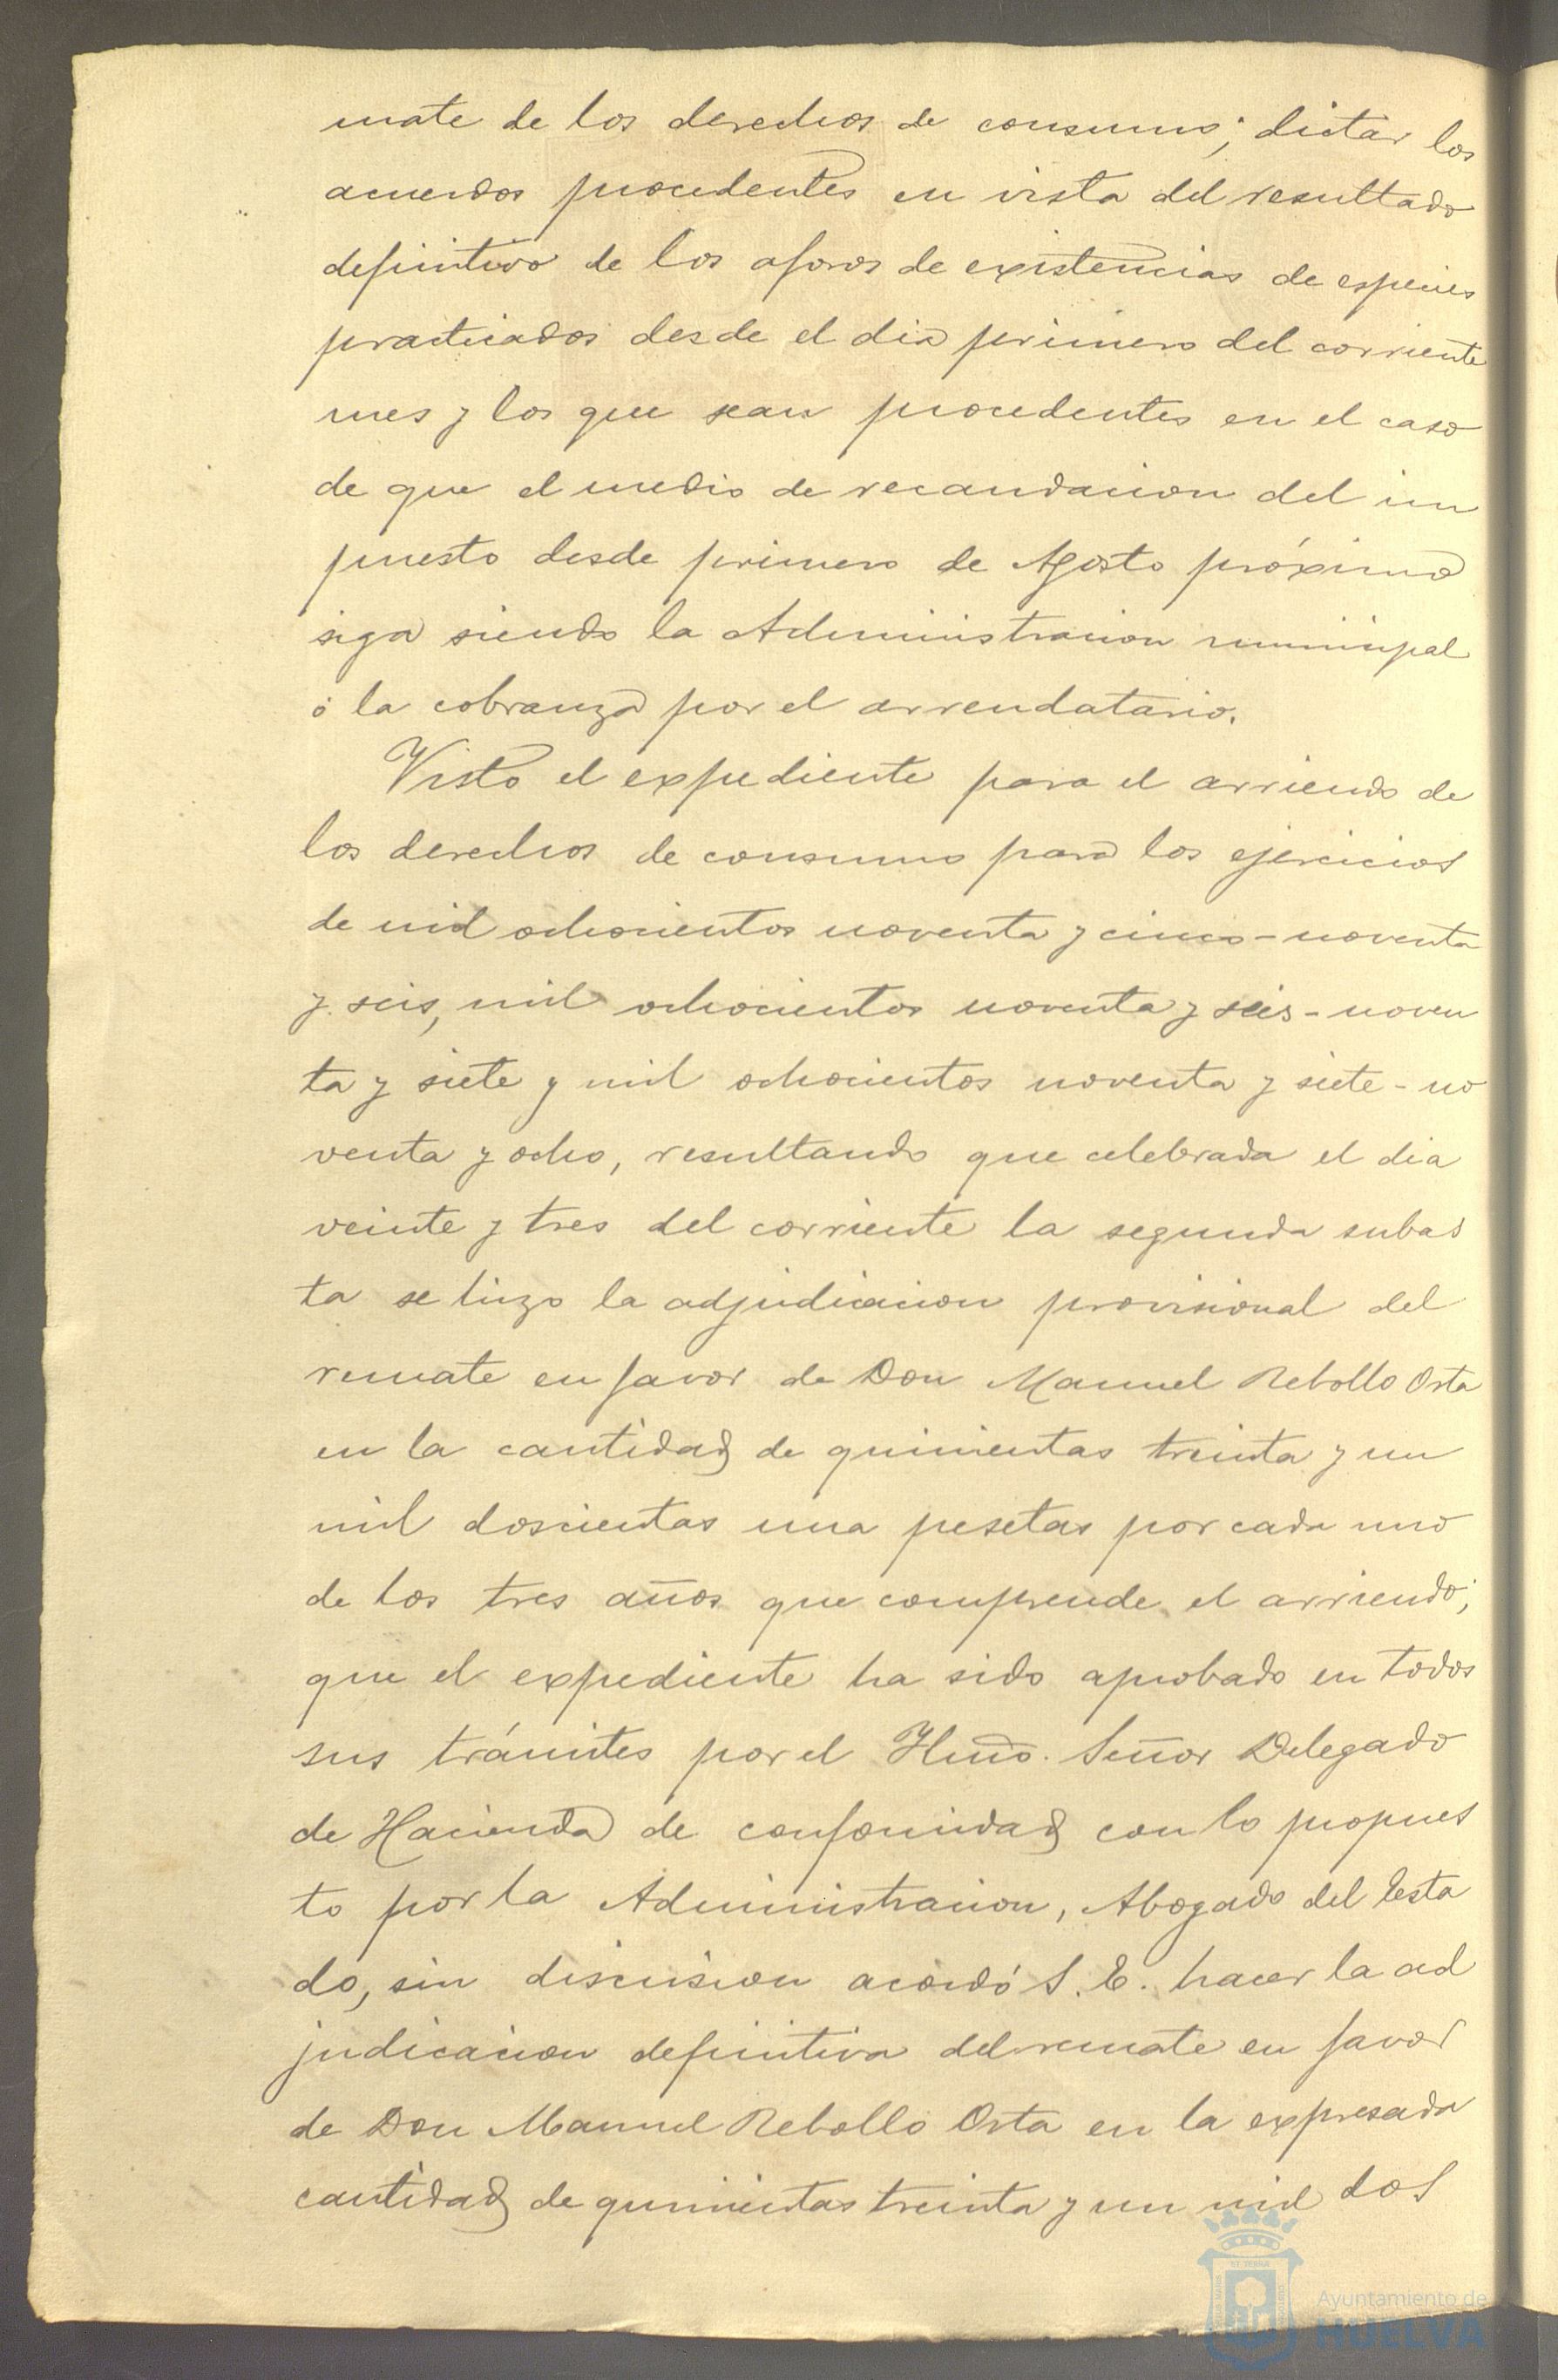 mate de los derechos de consumo; dictar los
acuerdos procedentes en vista del resultado
definitivo de los aforos de existencias de especies
practicados desde el dia primero del corriente
mes y los que sean procedentes en el caso
de que el medio de recaudacion del im
puesto desde primero de Agosto próximo
siga siendo la Administracion municipal
ó la cobranza por el arrendatario.
Visto el expediente para el arriendo de
los derechos de consumo para los ejercicios
de mil ochocientos noventa y cinco-noventa
y seis, mil ochocientos noventa y seis-noven
ta y siete y mil ochocientos noventa y siete-no
venta y ocho, resultando que celebrada el dia
veinte y tres del corriente la segunda subas
ta se hizo la adjudicacion provisional del
remate en favor de Don Manuel Rebollo Orta
en la cantidad de quinientas treinta y un
mil doscientas una pesetas por cada uno
de los tres años que comprende el arriendo;
que el expediente ha sido aprobado en todos
sus trámites por el Ilmo. Señor Delegado
de Hacienda de conformidad con lo propues
to por la Administracion, Abogado del Esta
do, sin discusion acordó S. E. hacer la ad
judicacion definitiva del remate en favor
de Don Manuel Rebollo Orta en la expresada
cantidad de quinientas treinta y un mil dos
Ayuntamiento de
HUELVA